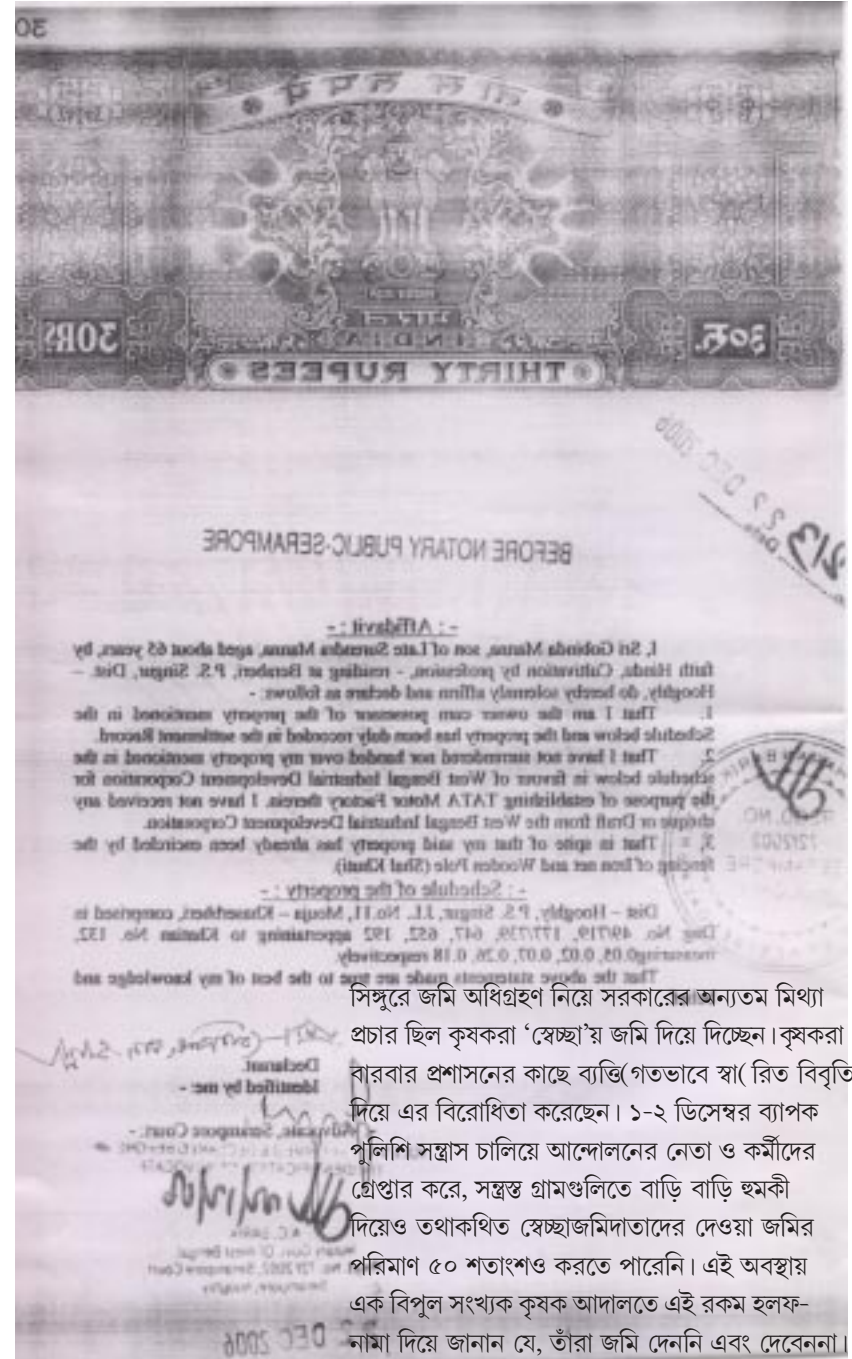 30
तीस रुपये
30RS.
३०रु.
INDIA
THIRTY RUPEES
22 DEC 2006
BEFORE NOTARY PUBLIC-SERAMPORE
- : Affidavit : -
I, Sri Gobinda Manna, son of Late Surendra Manna, aged about 65 years, by
faith Hindu, Cultivation by profession, - residing at Beraberi, P.S. Singur, Dist. –
Hooghly, do hereby solemnly affirm and declare as follows: -
1. That I am the owner cum possessor of the property mentioned in the
Schedule below and the property has been duly recorded in the settlement Record.
2. That I have not surrendered nor handed over my property mentioned in the
schedule below in favour of West Bengal Industrial Development Corporation for
the purpose of establishing TATA Motor Factory therein. I have not received any
cheque or Draft from the West Bengal Industrial Development Corporation.
3. That in spite of that my said property has already been encircled by the
fencing of Iron net and Wooden Pole (Shal Khuti).
- : Schedule of the property : -
Dist – Hooghly, P.S. Singur, J.L. No.11, Mouja – Khaserbheri, comprised in
Dag No. 497/719, 177/739, 647, 652, 192 appertaining to Khatian No. 132,
measuring0.05, 0.02, 0.07, 0.26, 0.18 respectively.
That the above statements made are true to the best of my knowledge and
Declarant.
Identified by me: -
Advocate, Serampore Court. -
DEC 2006
সিঙ্গুরে জমি অধিগ্রহণ নিয়ে সরকারের অন্যতম মিথ্যা
প্রচার ছিল কৃষকরা ‘স্বেচ্ছা’য় জমি দিয়ে দিচ্ছেন। কৃষকরা
বারবার প্রশাসনের কাছে ব্যত্তি(গতভাবে স্বা( রিত বিবৃতি
দিয়ে এর বিরোধিতা করেছেন। ১-২ ডিসেম্বর ব্যাপক
পুলিশি সন্ত্রাস চালিয়ে আন্দোলনের নেতা ও কর্মীদের
গ্রেপ্তার করে, সন্ত্রস্ত গ্রামগুলিতে বাড়ি বাড়ি হুমকী
দিয়েও তথাকথিত স্বেচ্ছাজমিদাতাদের দেওয়া জমির
পরিমাণ ৫০ শতাংশও করতে পারেনি। এই অবস্থায়
এক বিপুল সংখ্যক কৃষক আদালতে এই রকম হলফ-
নামা দিয়ে জানান যে, তাঁরা জমি দেননি এবং দেবেননা।